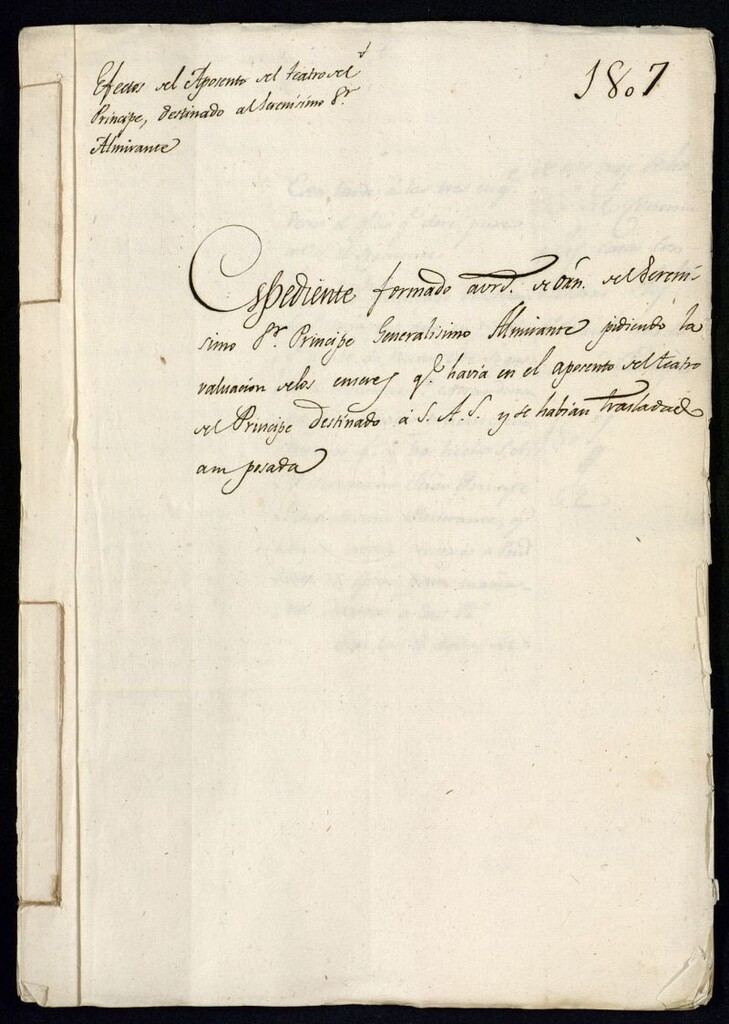 Efectos del Aposento del teatro del
Principe, destinado al Serenisimo Sr.
Almirante
1807
Espediente formado de del Sereni-
simo Sr. Principe Generalisimo Almirante pidiendo la
valuacion delos enseres qe. havia en el aposento del teatro
del Principe destinado á S. A. S. y se habian trasladado
a su posada